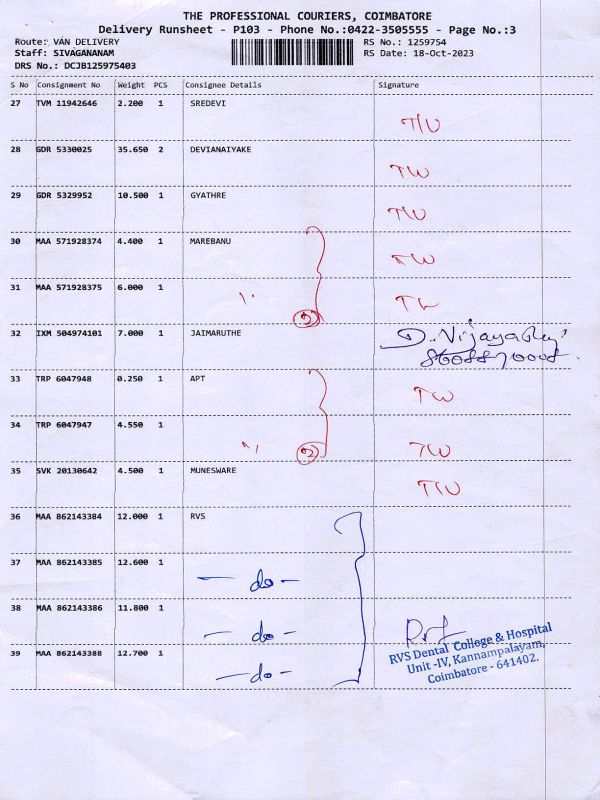 THE PROFESSIONAL COURIERS, COIMBATORE
Delivery Runsheet - P103 - Phone No.:0422-3505555 - Page No.:3
Route: VAN DELIVERY RS No.: 1259754
Staff: SIVAGANANAM RS Date: 18-Oct-2023
DRS No.: DCJB125975403
S No Consignment No Weight PCS Consignee Details Signature
27 TVM 11942646 2.200 1 SREDEVI
28 GDR 5330025 35.650 2 DEVIANAIYAKE
TW
29 GDR 5329952 10.500 1 GYATHRE
30 MAA 571928374 4.400 1 MAREBANU
TW
31 MAA 571928375 6.000 1
32 IXM 504974101 7.000 1 JAIMARUTHE
33 TRP 6047948 0.250 1 APT
TW
34 TRP 6047947 4.550 1
2 TW
35 SVK 20130642 4.500 1 MUNESWARE
36 MAA 862143384 12.000 1 RVS
37 MAA 862143385 12.600 1
- do -
38 MAA 862143386 11.800 1
- do -
39 MAA 862143388 12.700 1
- do -
RVS Dental College & Hospital
Unit -IV, Kannampalayam,
Coimbatore - 641402.